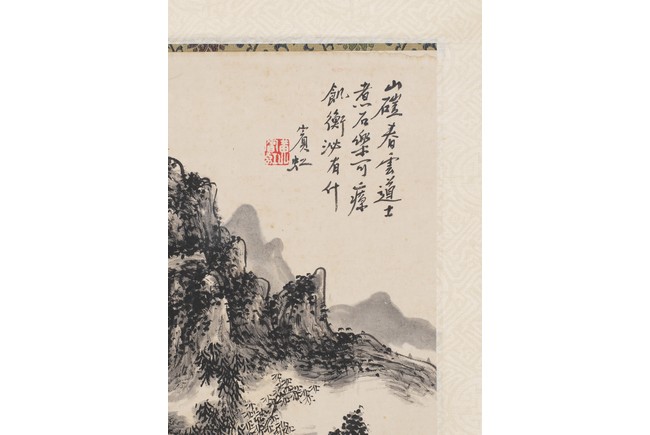 山磑春雲道士
煮石樂可療
飢衡泌有什
賓虹